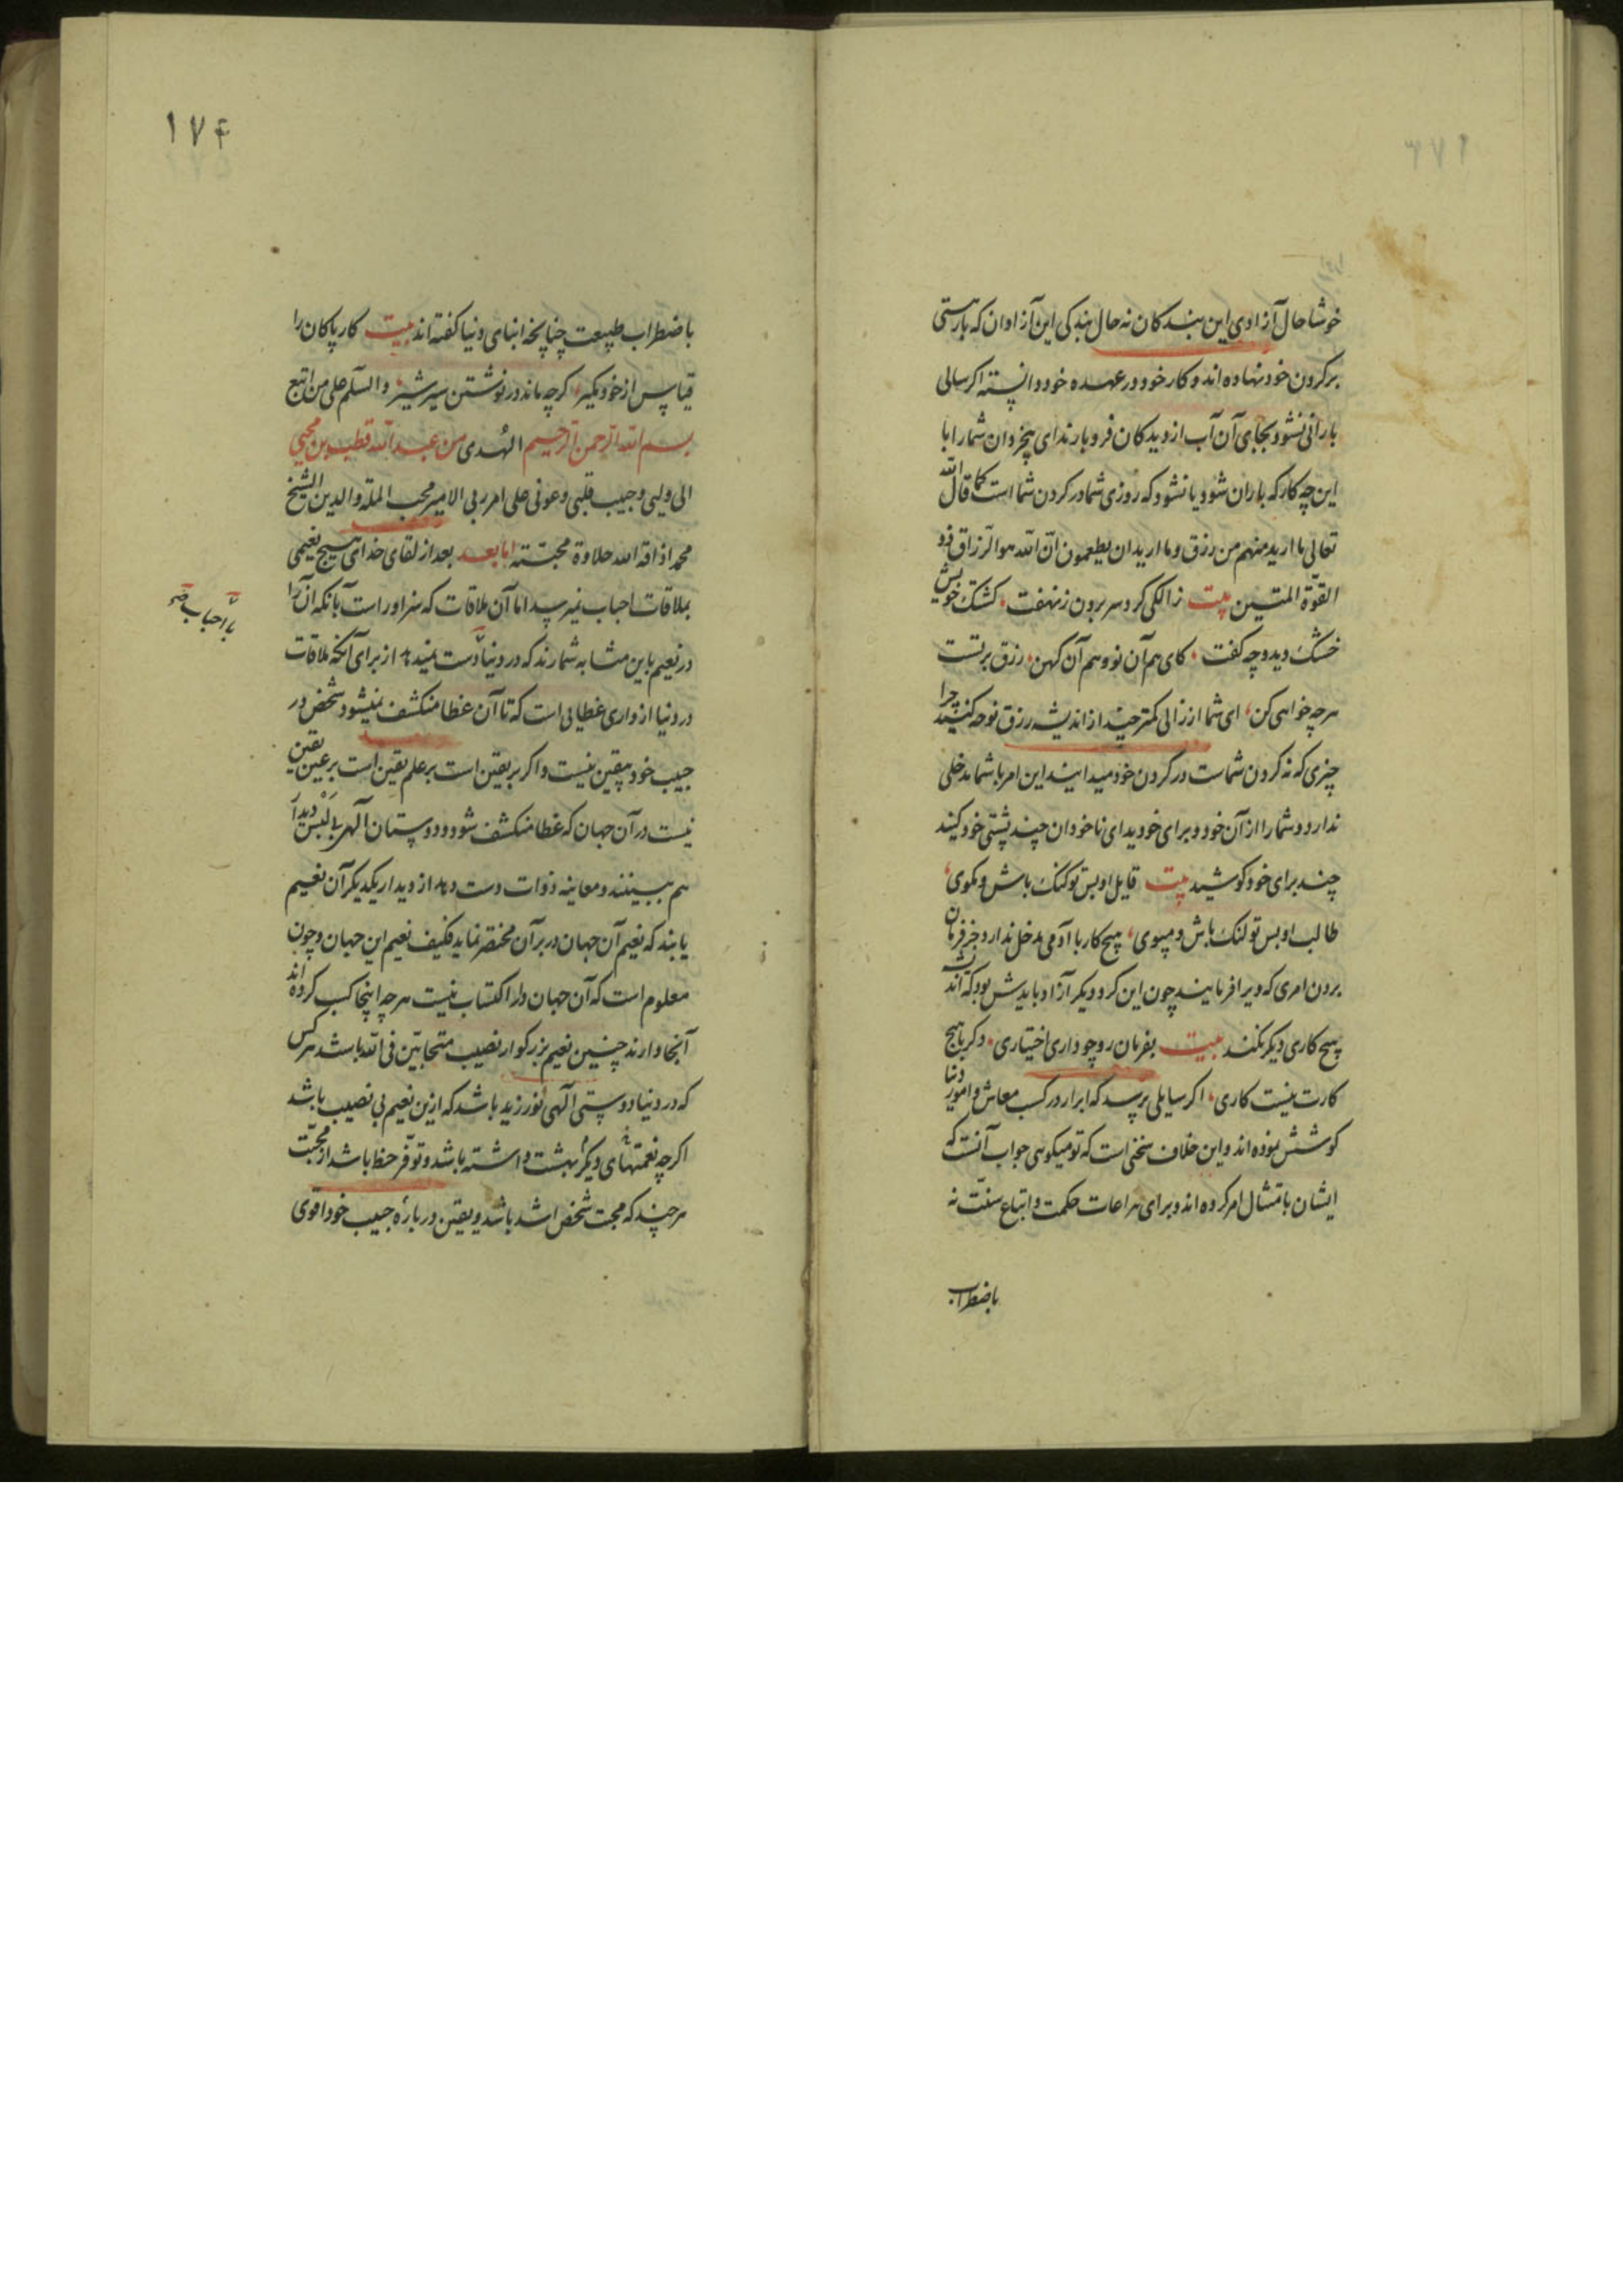 خوشا حال آزادی این بندکان نه حال بندکی این آزادان که بار هستی
بر کردن خود نهاده اند و کار خود در عهده خود دانسته اکر سالی
بارانی نشود بجای آن آب از دیدکان فرو بارند ای بیخردان شما را با
این چه کار که باران شود یا نشود که روزی شما در کردن شما است کما قال الله
تعالی ما ارید منهم من رزق و ما ارید ان یطعمون ان الله هو الرزاق ذو
القوة المتین بیت زالکی کرد سر برون ز نهفت کشتک خویش
خشک دید و چه کفت کای هم آن نو و هم آن کهن رزق بر تست
هرچه خواهی کن ای شما از زالی کمتر چند از اندیشه رزق نوحه کنید چرا
چیزی که نه کردن شماست در کردن خود میدانید این امر با شما مدخلی
ندارد و شما را از آن خود و برای خودید ای ناخودان چند پشتی خود کنید
چند برای خود کوشید بیت قایل او بس تو کنک باش و مکوی
طالب او بس تو لنک باش و مپوی هیچ کار با آدمی مدخل ندارد جز فرمان
بردن امری که ویرا فرمایند چون این کرد دیکر آزاد بایدش بود که اند
هیچ کاری دیکر نکند بیت بفرمان رو چو داری اختیاری دکر با هیچ
کارت نیست کاری اکر سایلی پرسد که ابرار در کسب معاش و امور دنیا
کوشش نموده اند و این خلاف سخنی است که تو میکویی جواب آنست که
ایشان بامتثال امر کرده اند و برای مراعات حکمت و اتباع سنت نه
باضطراب
۱۷۴
باضطراب طبیعت چنانچه ابنای دنیا کفته اند بیت کار پاکان را
قیاس از خود مکیر کرچه ماند در نوشتن سیر شیر والسلم علی من اتبع
الهدی بسم الله الرحمن الرحیم من عبد الله قطب بن محیی
الی ولیی و حبیب قلبی و عونی علی امر ربی الامیر محب الملة والدین الشیخ
محمد اذاقه الله حلاوة محبته اما بعد بعد از لقای خدای هیچ نعیمی
بملاقات احباب نمیرسد اما آن ملاقات که سزاور است بآنکه آن را
در نعیم باین مثابه شمارند که در دنیا دست نمیدهد از برای آنکه ملاقات
در دنیا از وارای غطایی است که تا آن غطا منکشف نمیشود شخص در
حبیب خود بیقین نیست و اکر بر یقین است بر علم یقین است بر عین یقین
نیست در آن جهان که غطا منکشف شود و دوستان الهی
هم ببینند و معاینه ذوات دست دهد از دیدار یکدیکر آن نعیم
یابند که نعیم آن جهان در بر آن مختصر نماید فکیف نعیم این جهان و چون
معلوم است که آن جهان دار اکتساب نیست هرچه اینجا کسب کرده اند
آنجا دارند چنین نعیم بزرکوار نصیب متحابین فی الله باشد هر کس
که در دنیا دوستی الهی نورزید باشد که ازین نعیم بی نصیب باشد
اکرچه نعمتهای دیکر بهشت داشته باشد و توفر حظ باشد از محبت
هر چند که محبت شخص اشد باشد و یقین درباره حبیب خود اقوی
با احباب